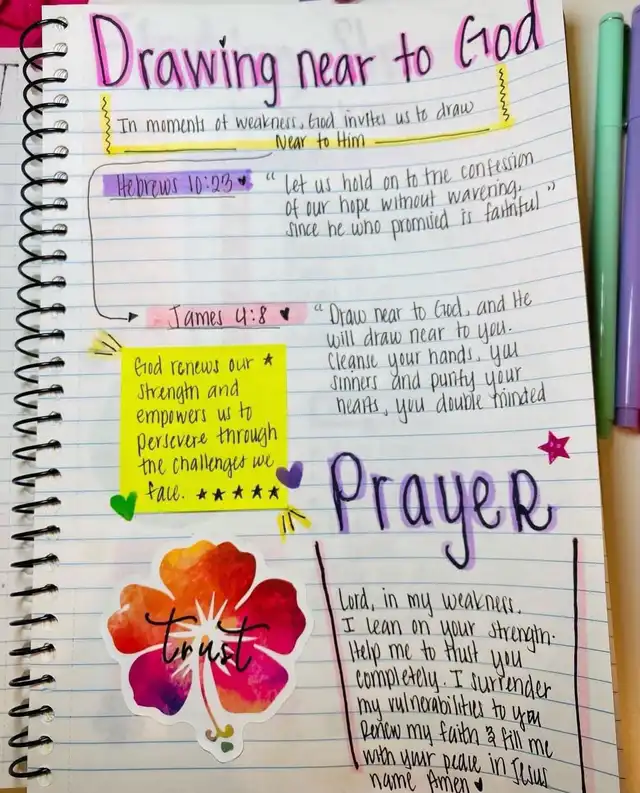 Drawing near to God
In moments of weakness, God invites us to draw
Near to Him
Hebrews 10:23 ♥
"Let us hold on to the confession
of our hope without wavering,
since he who promised is faithful"
James 4:8 ♥
"Draw near to God, and He
will draw near to you.
Cleanse your hands, you
sinners and purify your
hearts, you double minded
God renews our ★
strength and
empowers us to
persevere through
the challenges we
face. ★★★★★
Prayer
trust
Lord, in my weakness.
I lean on your strength.
Help me to trust you
completely. I surrender
my vulnerabilities to you
Renew my faith & fill me
with your peace in Jesus
name Amen ♥